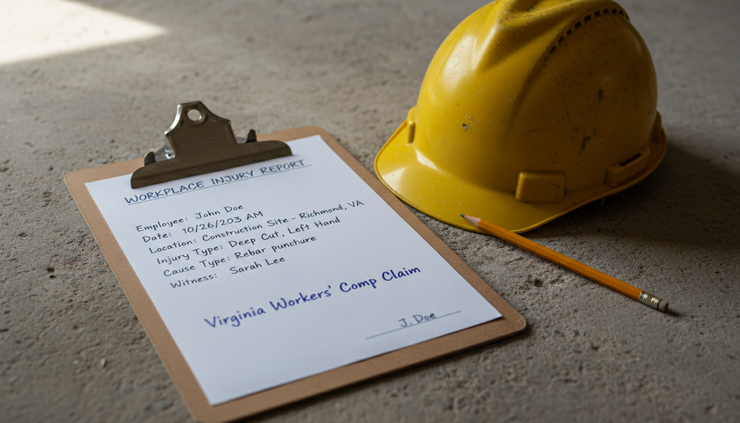 WORKPLACE INJURY REPORT
Employee: John Doe
Date: 10/26/203 AM
Location: Construction Site - Richmond, VA
Injury Type: Deep Cut, Left Hand
Cause Type: Rebar puncture
Witness: Sarah Lee
Virginia Workers' Comp Claim
J. Doe